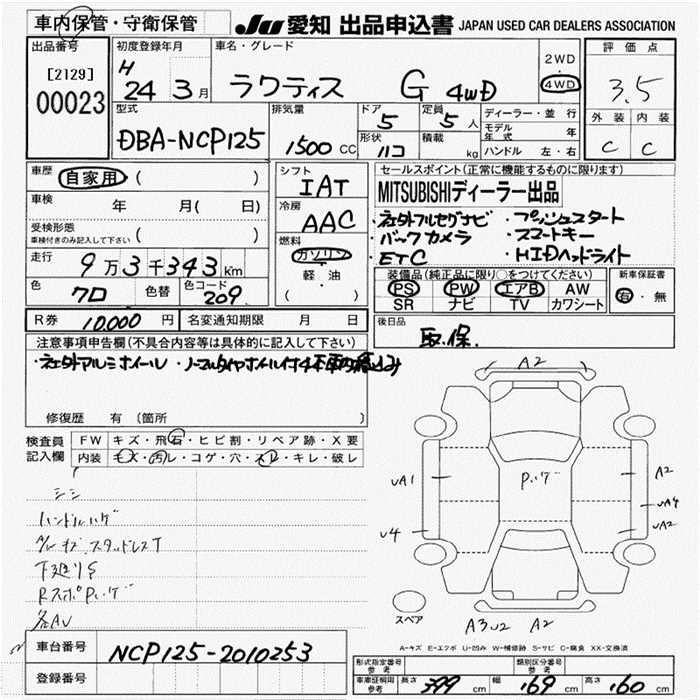 車内保管・守衛保管
JU 愛知 出品申込書 JAPAN USED CAR DEALERS ASSOCIATION
出品番号
[2129]
00023
初度登録年月
H 24 3月
車名・グレード
ラクティス G 4WD
2WD
4WD
評価点
3.5
外装 内装
C C
型式
DBA-NCP125
排気量
1500 CC
ドア
5
形状
ハコ
定員
5人
積載
kg
ディーラー・並行
モデル年式 年
ハンドル 左・右
車歴
自家用 ( )
車検
年 月( 日)
受検形態
車検付きのみ記入して下さい ( )
走行
9万3千343Km
色
クロ
色替
色コード
209
シフト
IAT
冷房
AAC
燃料
ガソリン
軽・油
( )
セールスポイント(正常に機能するものに限ります)
MITSUBISHIディーラー出品
・社外フルセグナビ ・プッシュスタート
・バックカメラ ・スマートキー
・ETC ・HIDヘッドライト
装備品(純正品に限り○をつけてください)
PS PW エアB AW
SR ナビ TV カワシート
新車保証書
有・無
R券 10,000 円
名変通知期限 月 日
後日品
取.保.
注意事項申告欄(不具合内容等は具体的に記入して下さい)
・社外アルミホイール ・ノーマルタイヤホイール付4本車内積込み
修復歴 有 (箇所 )
検査員記入欄
FW キズ・飛石・ヒビ割・リペア跡・X要
内装 キズ・汚レ・コゲ・穴・スレ・キレ・破レ
シミ
ハンドルハゲ
A/Wキズ.スタッドレスT
下廻りS
RスポPハゲ
各AU
A2
Pハゲ
UA1
A2
UA4
U4
UA2
スペア
A3U2 A2
A-キズ E-エクボ U-凹み W-補修跡 S-サビ C-腐食 XX-交換済
車台番号
NCP125-2010253
登録番号
形式指定番号 参考
類別区分番号 参考
車庫証明用 参考
長さ 399 cm 幅 169 cm 高さ 160 cm